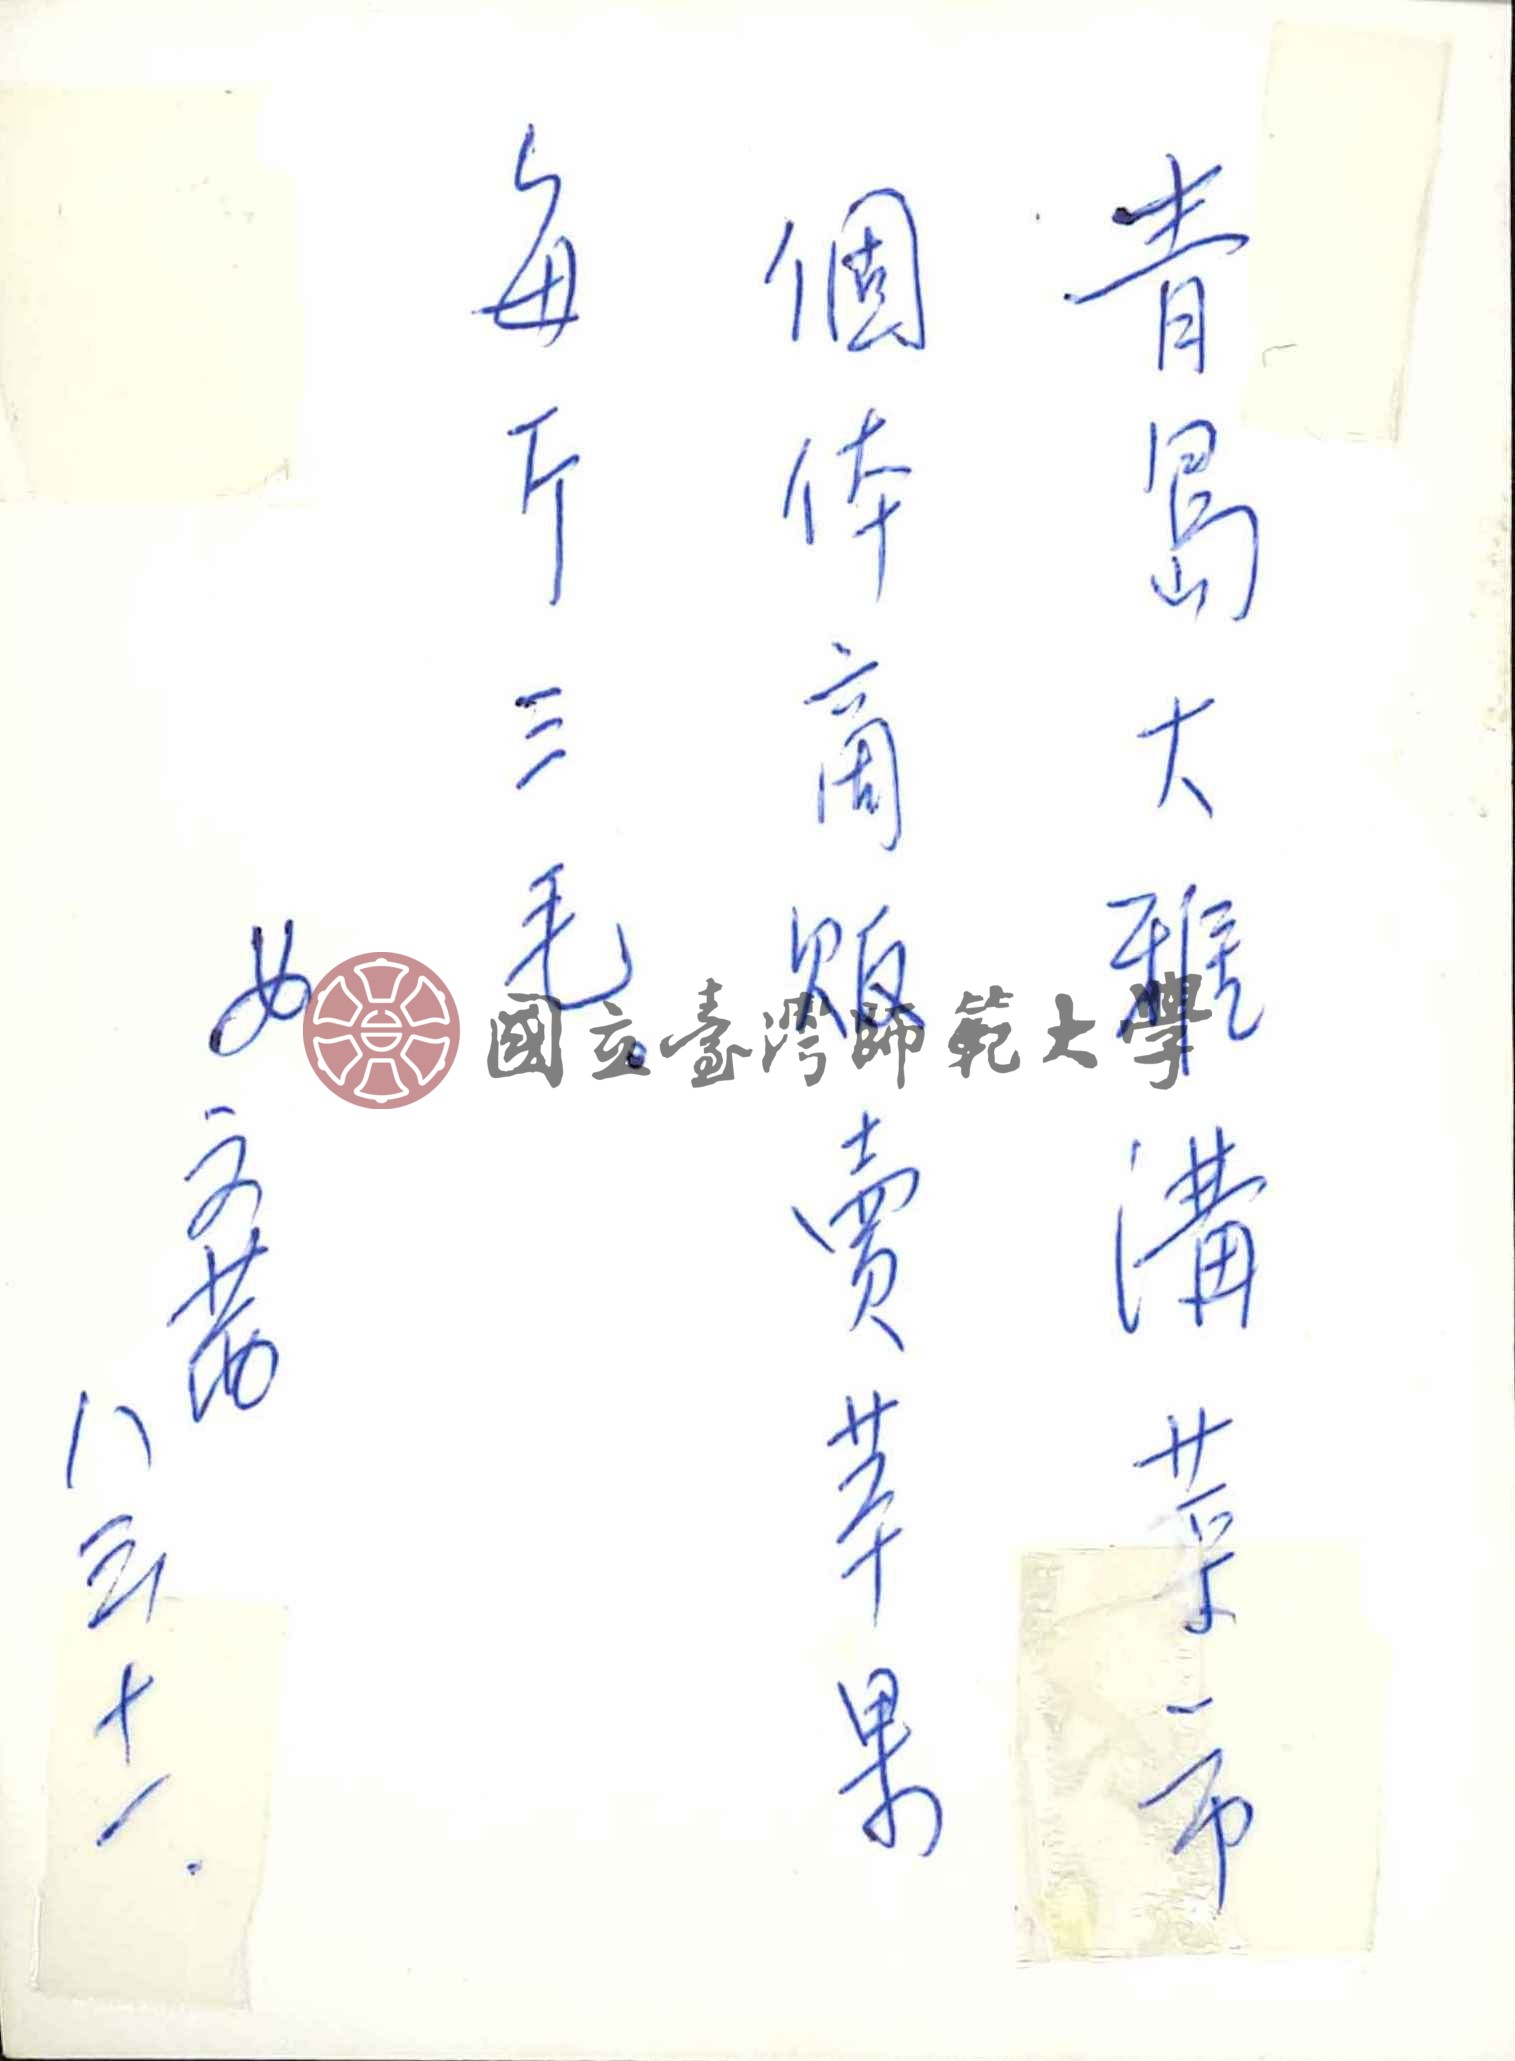 青島大雅溝菜市
個体商販賣苹果
每斤三毛.
女 文茜
八三十一.
國立臺灣師範大學